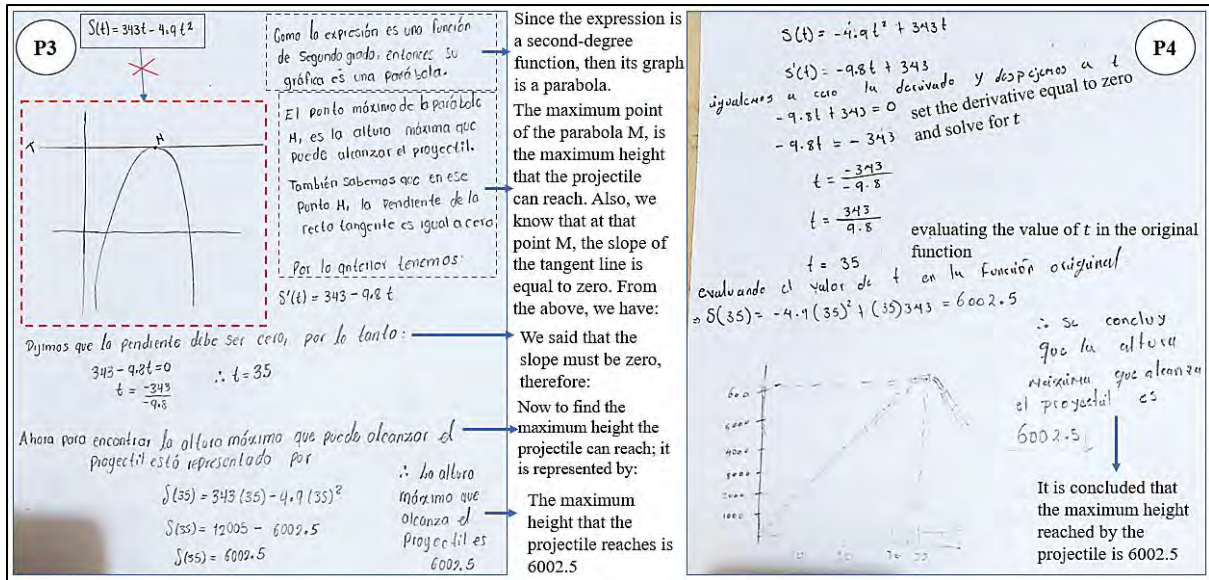 P3
S(t) = 343t - 4.9t²
Como la expresión es una función
de Segundo grado, entonces su
gráfica es una parábola.
El ponto máximo de la parábola
M, es la altura máxima que
puede alcanzar el proyectil.
También sabemos que en ese
Punto M, la Pendiente de la
recta tangente es igual a cero
Por lo anterior tenemos:
S'(t) = 343 - 9.8 t
M
Dijimos que la pendiente debe ser cero, por lo tanto:
343 - 9.8t = 0
t = -343/-9.8
∴ t = 35
Ahora para encontrar la altura máxima que puede alcanzar el
Proyectil está representado por
S(35) = 343(35) - 4.9(35)²
S(35) = 12005 - 6002.5
S(35) = 6002.5
∴ La altura
máxima que
alcanza el
Proyectil es
6002.5
Since the expression is
a second-degree
function, then its graph
is a parabola.
The maximum point
of the parabola M, is
the maximum height
that the projectile
can reach. Also, we
know that at that
point M, the slope of
the tangent line is
equal to zero. From
the above, we have:
We said that the
slope must be zero,
therefore:
Now to find the
maximum height the
projectile can reach; it
is represented by:
The maximum
height that the
projectile reaches is
6002.5
P4
S(t) = -4.9t² + 343t
S'(t) = -9.8t + 343
igualemos a cero la derivada y despejemos a t
-9.8t + 343 = 0
set the derivative equal to zero
and solve for t
-9.8t = -343
t = -343/-9.8
t = 343/9.8
t = 35
evaluating the value of t in the original
function
evaluando el valor de t en la función original
S(35) = -4.9(35)² + (35)343 = 6002.5
∴ Se concluy
que la altura
máxima que alcanza
el proyectil es
6002.5
600
5000
4000
2000
1000
It is concluded that
the maximum height
reached by the
projectile is 6002.5